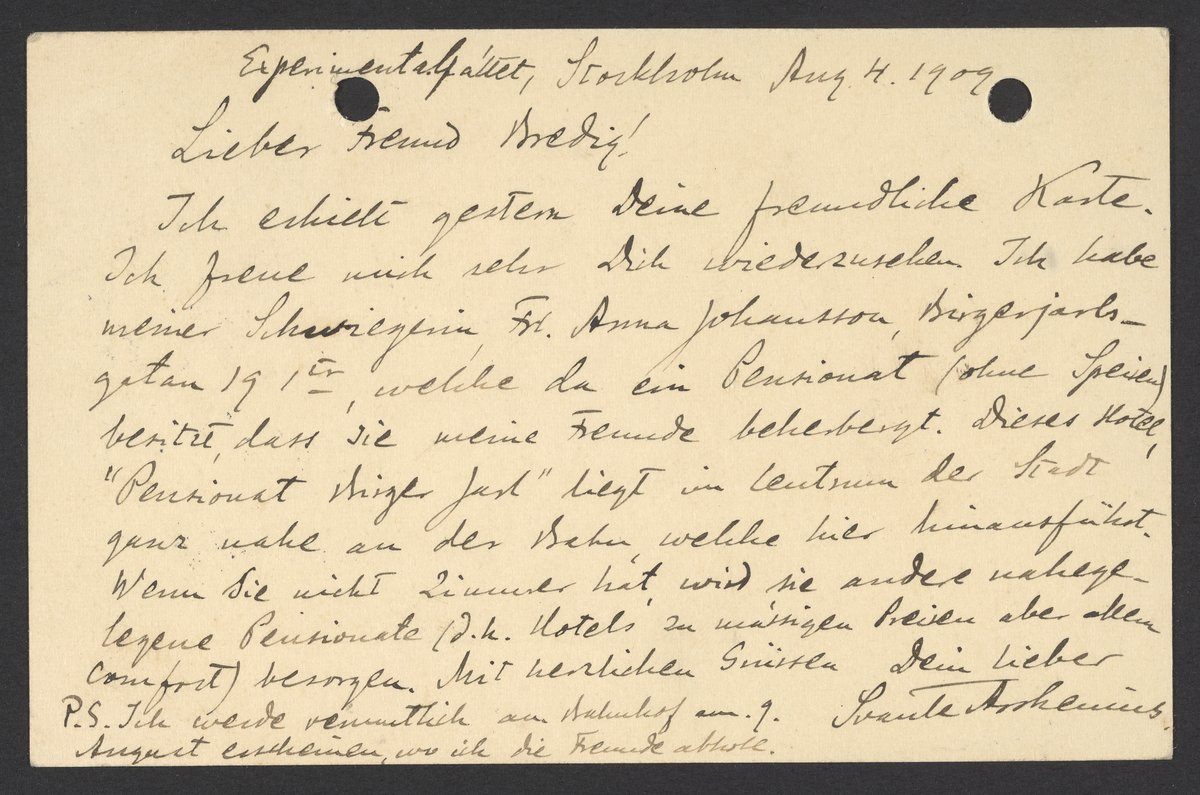 Experimentalfältet, Stockholm Aug 4. 1909
Lieber Freund Bredig!
Ich erhielt gestern Deine freundliche Karte.
Ich freue mich sehr Dich wiederzusehen. Ich habe
meiner Schwiegerin, Frl. Anna Johansson, Birgerjarls-
gatan 19 1tr, welche da ein Pensionat (ohne Speisen)
besitzt, dass sie meine Freunde beherbergt. Dieses Hotel,
"Pensionat Birger Jarl" liegt im Centrum der Stadt
ganz nahe an der Bahn, welche hier hinausführt.
Wenn Sie nicht Zimmer hat, wird sie andere nahege-
legene Pensionate (d.h. Hotels zu mässigen Preisen aber allem
Comfort) besorgen. Mit herzlichen Grüssen Dein lieber
Svante Arrhenius.
P.S. Ich werde vermutlich am Bahnhof am 9.
August erscheinen, wo ich die Freunde abhole.